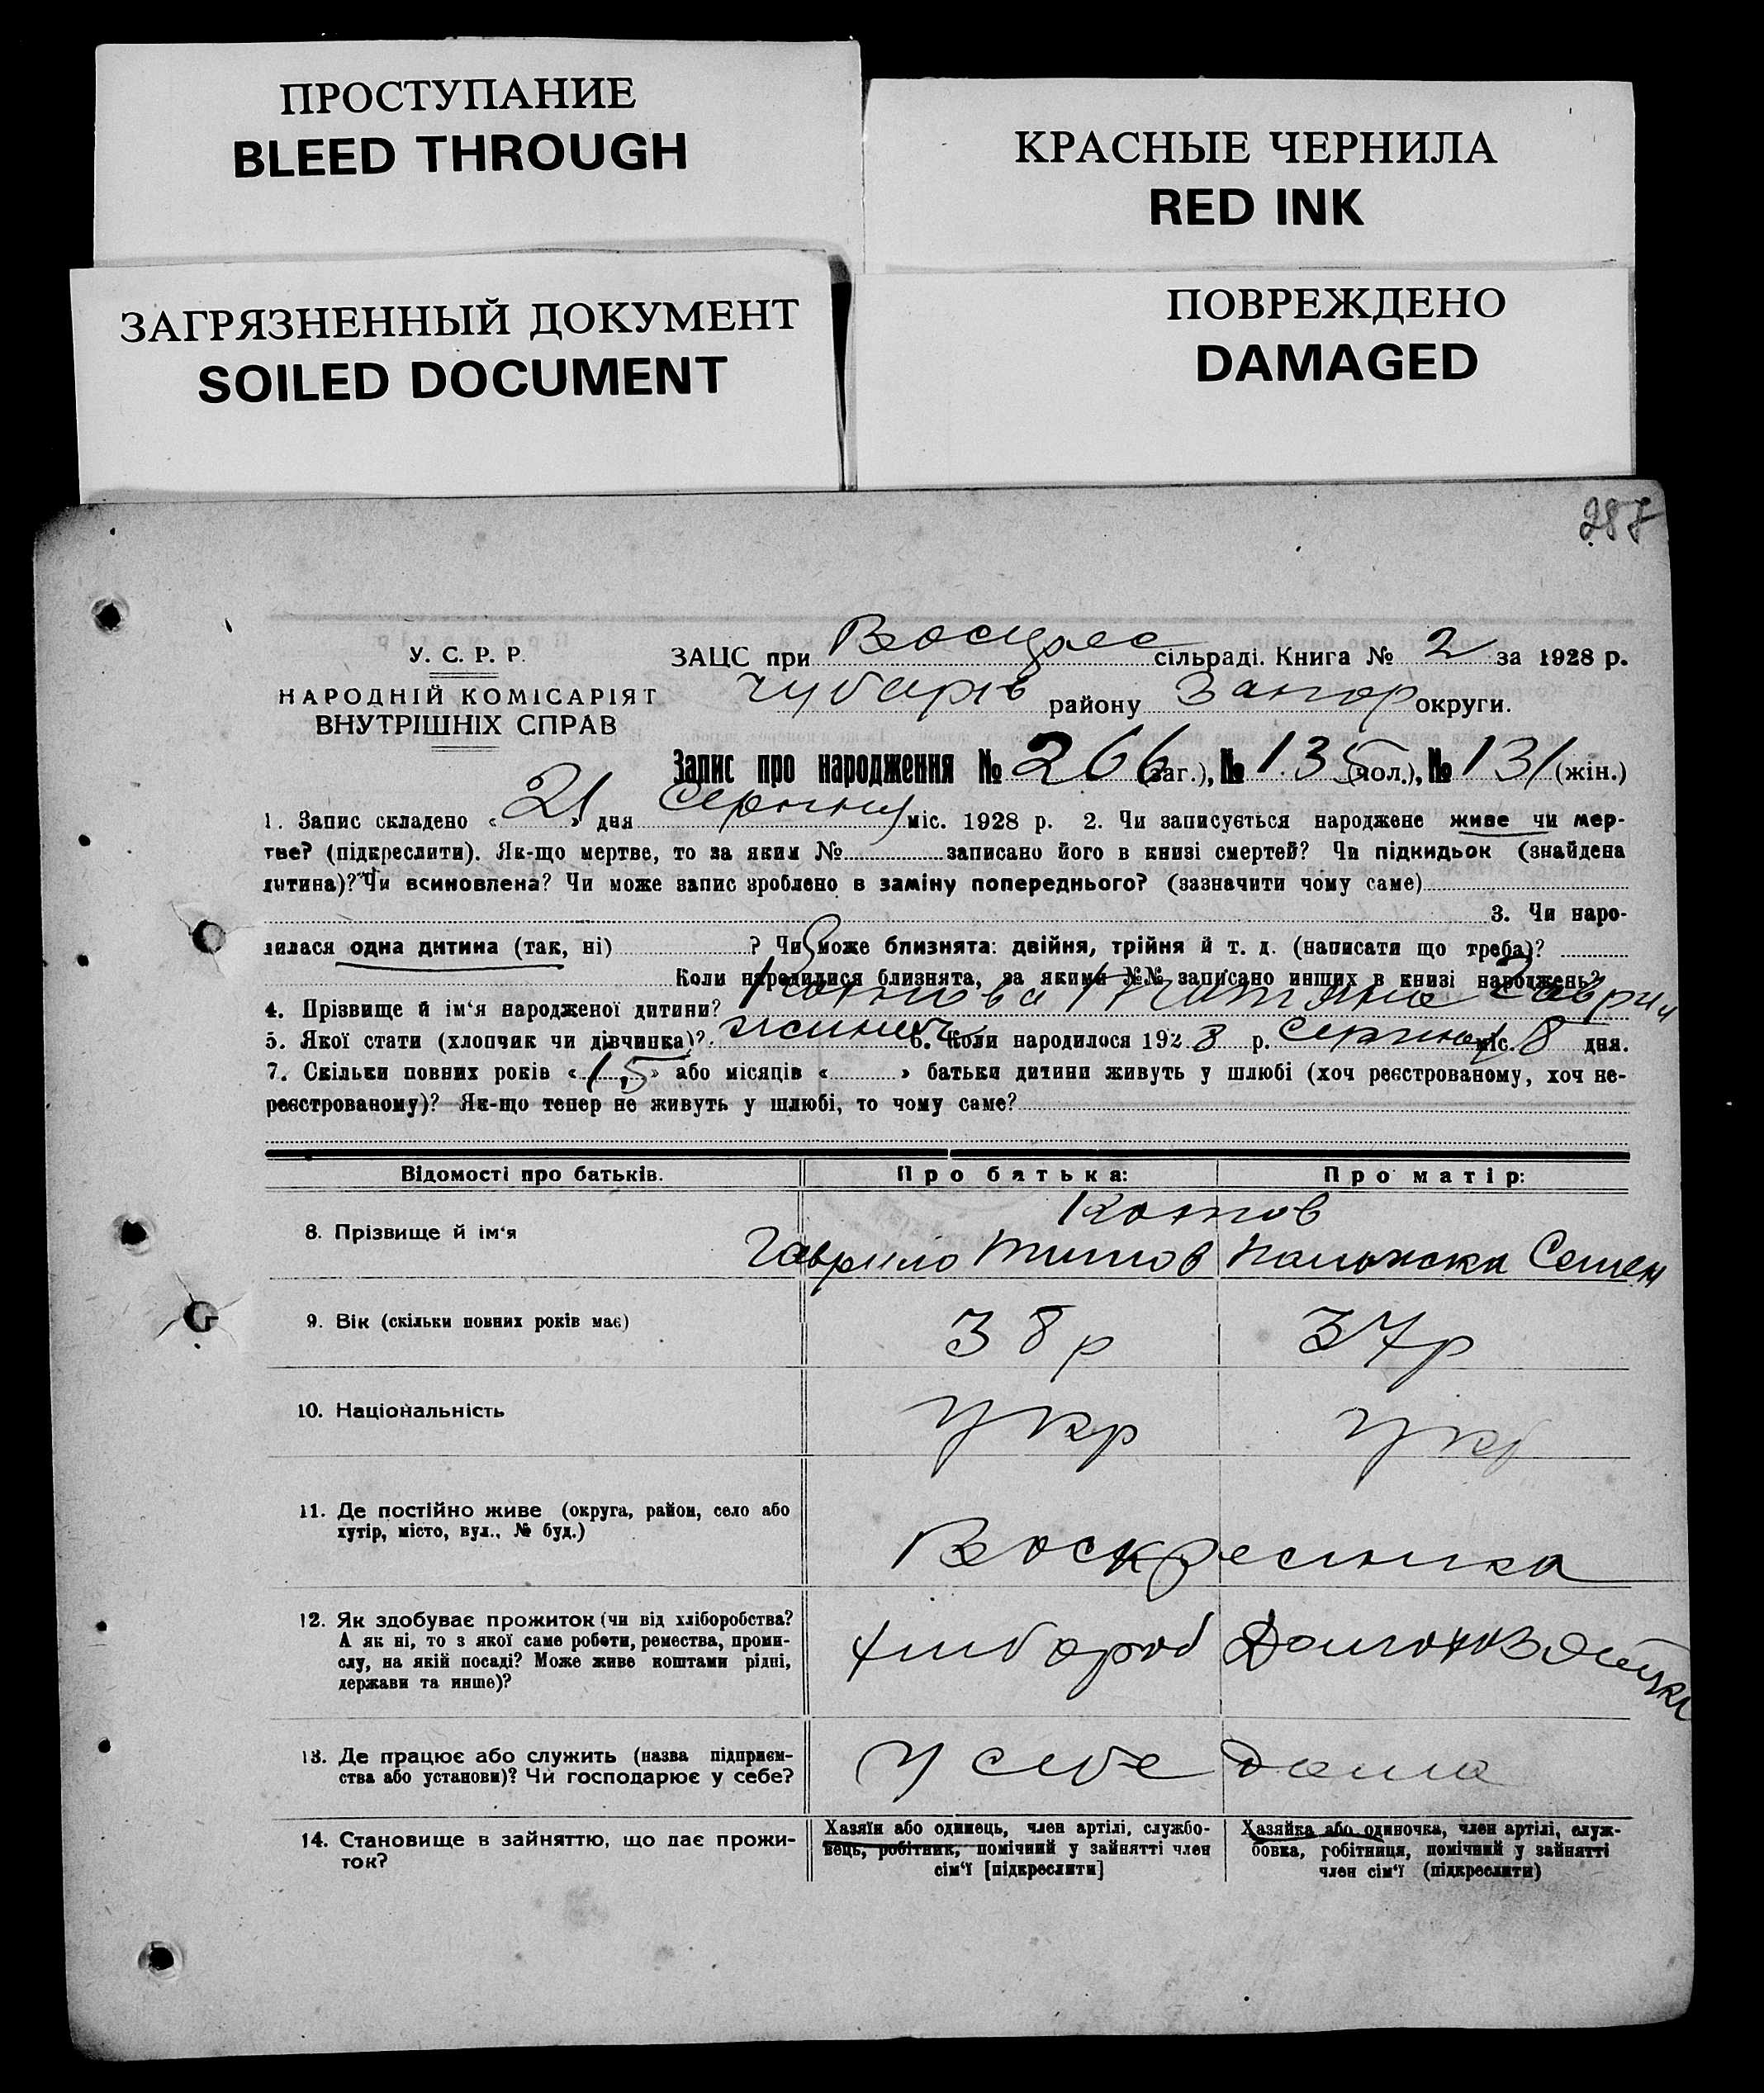 ПРОСТУПАНИЕ
BLEED THROUGH
КРАСНЫЕ ЧЕРНИЛА
RED INK
ЗАГРЯЗНЕННЫЙ ДОКУМЕНТ
SOILED DOCUMENT
ПОВРЕЖДЕНО
DAMAGED
287
У. С. Р. Р.
НАРОДНІЙ КОМІСАРІЯТ
ВНУТРІШНІХ СПРАВ
ЗАЦС при Воскрес сільраді. Книга № 2 за 1928 р.
Чубарів району Запор округи.
Запис про народження № 266 (заг.), № 135 (чол.), № 131 (жін.)
1. Запис складено « 21 » дня Серпня міс. 1928 р. 2. Чи записується народжене живе чи мер-
тве? (підкреслити). Як-що мертве, то за яким № записано його в книзі смертей? Чи підкидьок (знайдена
дитина)? Чи всиновлена? Чи може запис зроблено в заміну попереднього? (зазначити чому саме)
3. Чи наро-
дилася одна дитина (так, ні) ? Чи може близнята: двійня, трійня й т. д. (написати що треба)?
Коли народилися близнята, за якими №№ записано инших в книзі народжень?
4. Прізвище й ім‘я народженої дитини? Котова Гаврил
5. Якої стати (хлопчик чи дівчинка)? 6. Коли народилося 1928 р. Серпня міс. 8 дня.
7. Скільки повних років « 15 » або місяців « » батьки дитини живуть у шлюбі (хоч реєстрованому, хоч не-
реєстрованому)? Як-що тепер не живуть у шлюбі, то чому саме?
Відомості про батьків. Про батька: Про матір:
8. Прізвище й ім‘я Котов
Гаврило Титов Палажка Семен
9. Вік (скільки повних років має) 38 р 37 р
10. Національність Укр Укр
11. Де постійно живе (округа, район, село або
хутір, місто, вул., № буд.)
Воскресинка
12. Як здобуває прожиток (чи від хліборобства?
А як ні, то з якої саме роботи, ремества, проми-
слу, на якій посаді? Може живе коштами рідні,
держави та инше)?
Хлибороб
13. Де працює або служить (назва підприєм-
ства або установи)? Чи господарює у себе?
У себе дома
14. Становище в зайняттю, що дає прожи-
ток?
Хазяїн або одинець, член артілі, службо-
вець, робітник, помічний у зайнятті член
сім‘ї [підкреслити]
Хазяйка або одиночка, член артілі, служ-
бовка, робітниця, помічний у зайнятті
член сім‘ї (підкреслити)